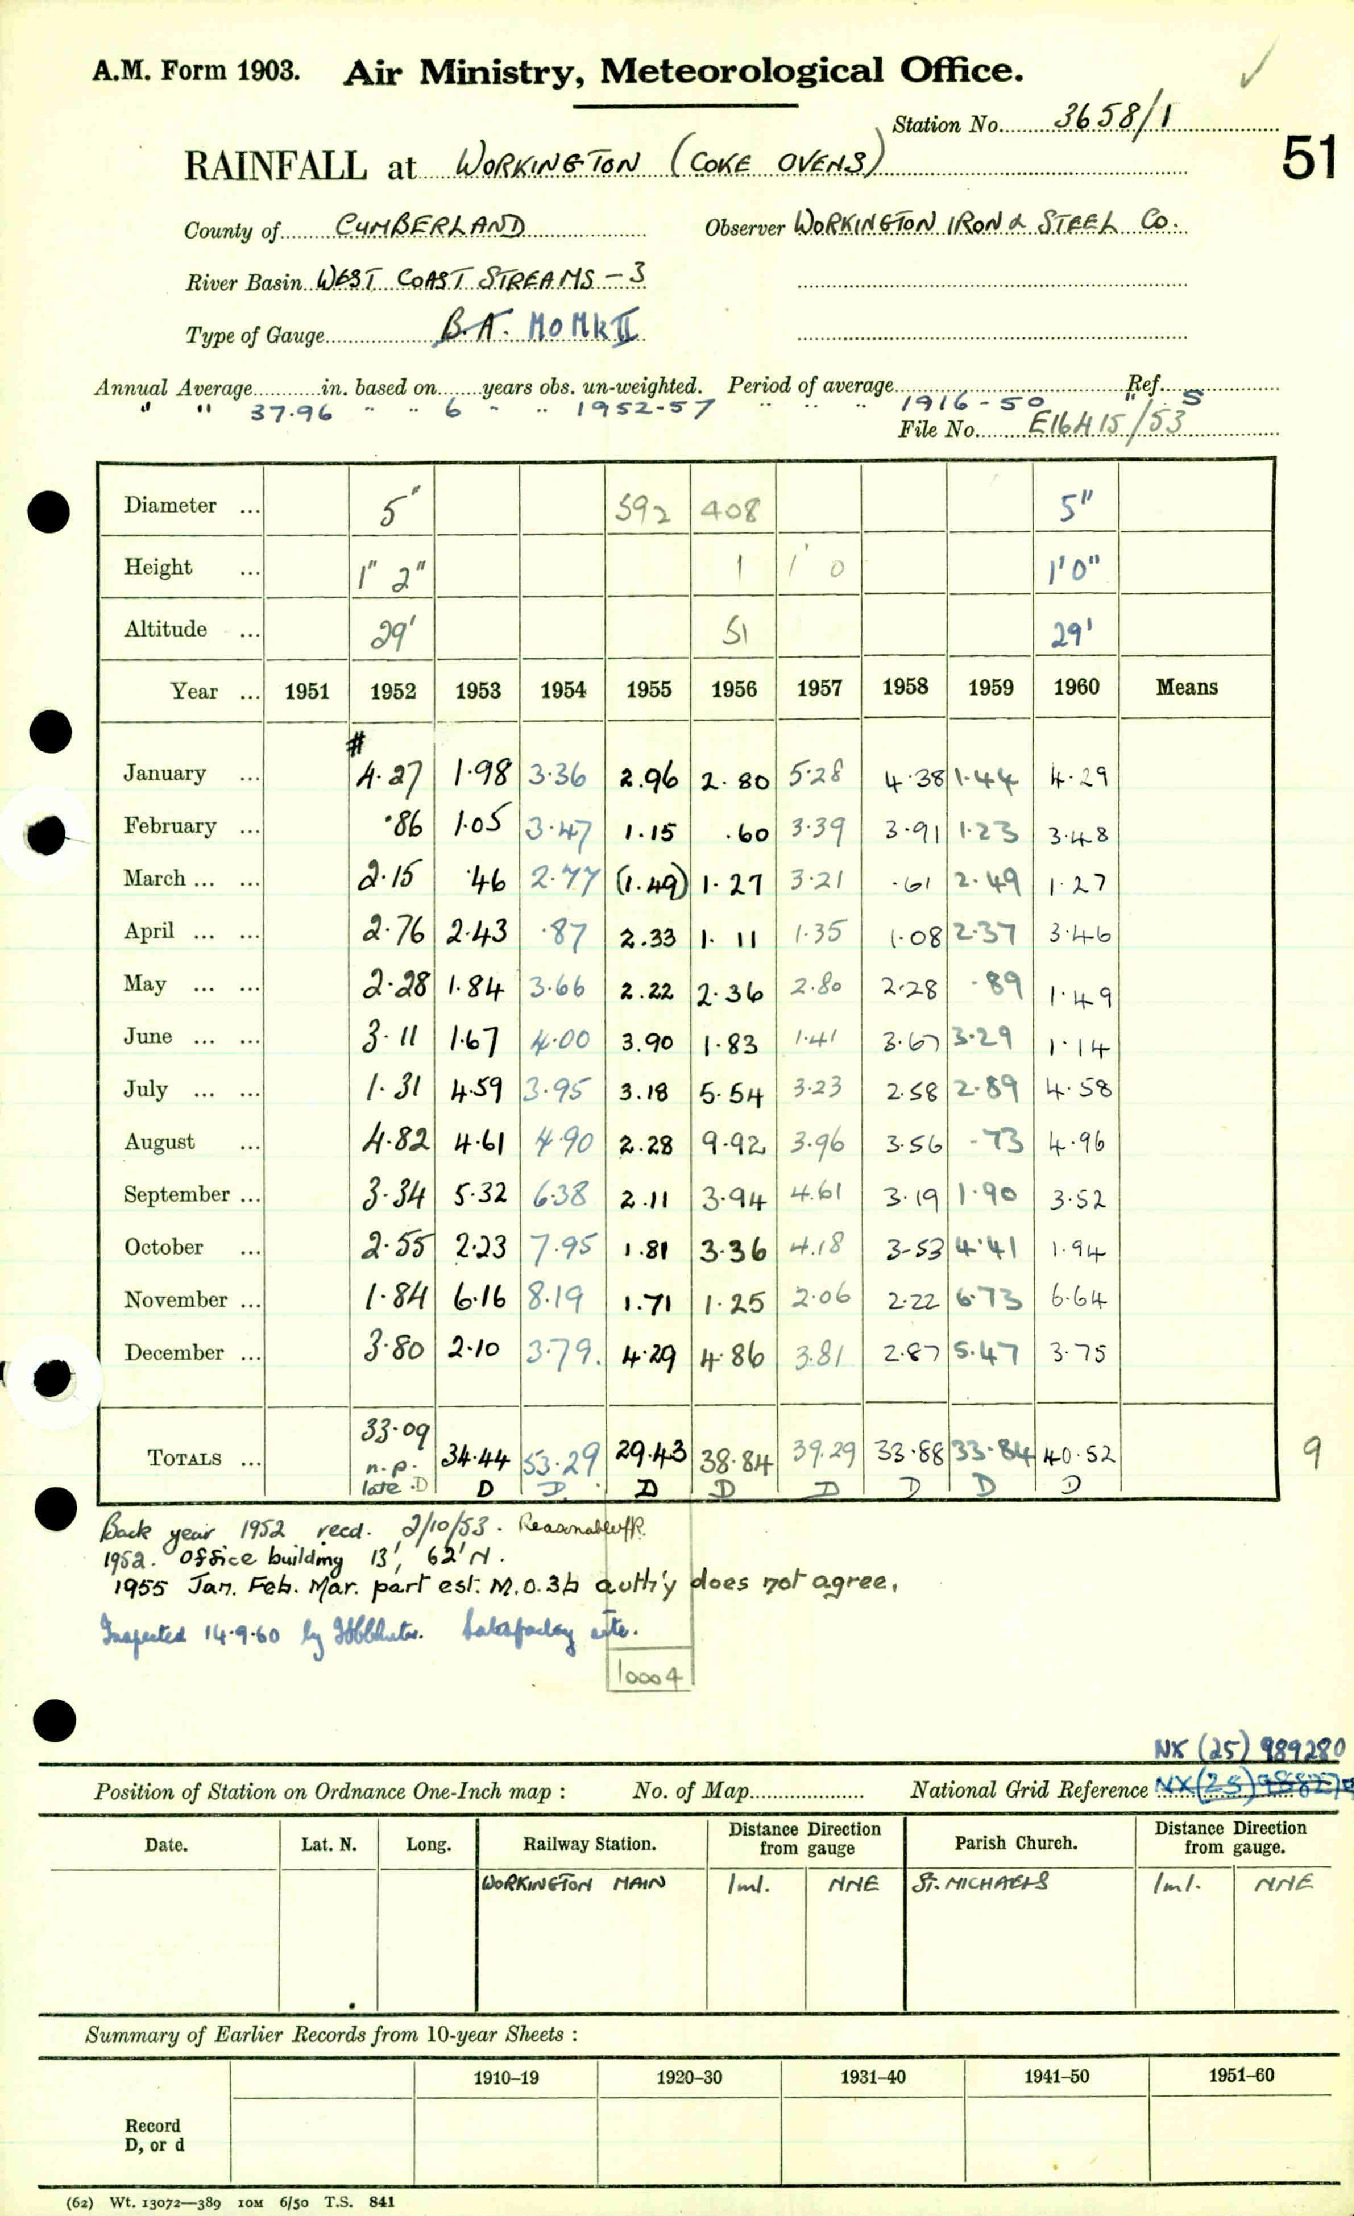 A.M. Form 1903. Air Ministry, Meteorological Office.
Station No. 3658/1
RAINFALL at WORKINGTON (COKE OVENS)
51
County of CUMBERLAND Observer WORKINGTON IRON & STEEL Co.
River Basin WEST COAST STREAMS – 3
Type of Gauge B.A. MO Mk II
Annual Average in. based on years obs. un-weighted. Period of average Ref.
" " 37.96 " " 6 " " 1952-57 " " " 1916-50 " S
File No. E16415/53
Diameter ... 5" 592 408 5"
Height ... 1" 2" 1 1' 0 1'0"
Altitude ... 29' 51 29'
Year ... 1951 1952 1953 1954 1955 1956 1957 1958 1959 1960 Means
#
January ... 4.27 1.98 3.36 2.96 2.80 5.28 4.38 1.44 4.29
February ... .86 1.05 3.47 1.15 .60 3.39 3.91 1.23 3.48
March ... ... 2.15 .46 2.77 (1.49) 1.27 3.21 .61 2.49 1.27
April ... ... 2.76 2.43 .87 2.33 1.11 1.35 1.08 2.37 3.46
May ... ... 2.28 1.84 3.66 2.22 2.36 2.80 2.28 .89 1.49
June ... ... 3.11 1.67 4.00 3.90 1.83 1.41 3.67 3.29 1.14
July ... ... 1.31 4.59 3.95 3.18 5.54 3.23 2.58 2.89 4.58
August ... 4.82 4.61 4.90 2.28 9.92 3.96 3.56 .73 4.96
September ... 3.34 5.32 6.38 2.11 3.94 4.61 3.19 1.90 3.52
October ... 2.55 2.23 7.95 1.81 3.36 4.18 3.53 4.41 1.94
November ... 1.84 6.16 8.19 1.71 1.25 2.06 2.22 6.73 6.64
December ... 3.80 2.10 3.79. 4.29 4.86 3.81 2.87 5.47 3.75
TOTALS ... 33.09 34.44 53.29 29.43 38.84 39.29 33.88 33.84 40.52 9
n.p.
late .D D D D D D D D D
Back year 1952 recd. 2/10/53. Reasonable
1952. Office building 13', 62' N.
1955 Jan. Feb. Mar. part est. M.O.3b auth'y does not agree.
Inspected 14.9.60 by Satisfactory site.
10004
NX (25) 989280
Position of Station on Ordnance One-Inch map : No. of Map National Grid Reference
Date. Lat. N. Long. Railway Station. Distance from gauge Direction Parish Church. Distance from gauge. Direction
WORKINGTON MAIN 1ml. NNE ST. MICHAELS 1ml. NNE
Summary of Earlier Records from 10-year Sheets :
1910–19 1920–30 1931–40 1941–50 1951–60
Record
D, or d
(62) Wt. 13072—389 10M 6/50 T.S. 841